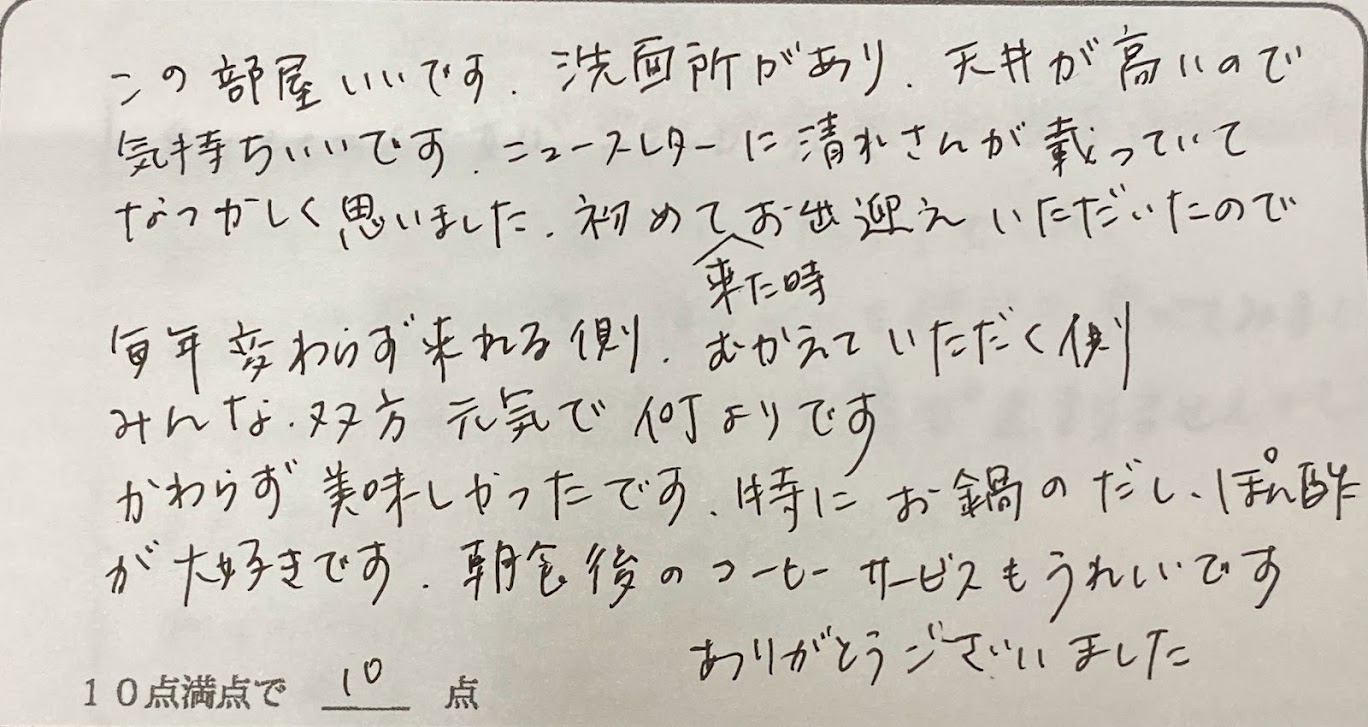 この部屋いいです、洗面所があり、天井が高いので
気持ちいいです、ニュースレターに清水さんが載っていて
なつかしく思いました、初めてお出迎えいただいたので
来た時
毎年変わらず来れる側、むかえていただく側
みんな、双方元気で何よりです
かわらず美味しかったです、特にお鍋のだし、ぽん酢
が大好きです、朝食後のコーヒーサービスもうれしいです
ありがとうございました
10点満点で 10 点